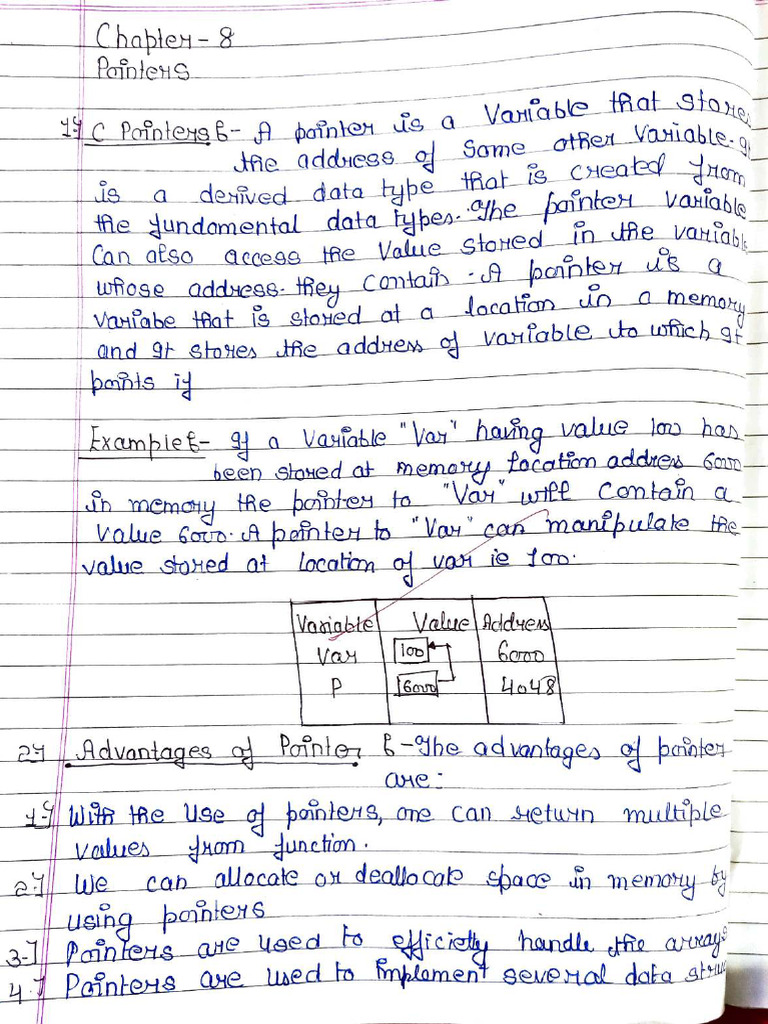 Chapter - 8
Pointers
1. C Pointers :- A pointer is a Variable that store
the address of Some other Variable. It
is a derived data type that is created from
the fundomental data types. The pointer variable
Can also access the Value stored in the variabl
whose address. they Contain . A pointer is a
Variabe that is stored at a location in a memory
and It stores the address of variable to which It
points if
Example :- If a Variable "Var" having value 100 has
been stored at memory Location address 6000
in memory the pointer to "Var" will Contain a
Value 6000. A pointer to "Var" can manipulate the
value stored at Location of var ie 100.
Variable Value Address
Var 100 6000
P 6000 4048
2. Advantages of Pointer :- The advantages of pointer
are :
1. With the Use of pointers, one can return multiple
values from function.
2. We can allocate or deallocate space in memory by
using pointers
3. Pointers are used to efficietly handle the arrays
4. Pointers are used to implement several data struc